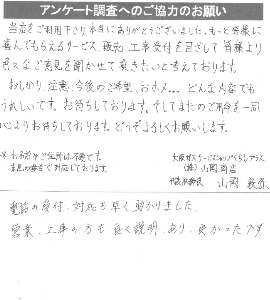 アンケート調査へのご協力のお願い
当店をご利用下さり本当にありがとうございました。もっと皆様に
喜んでもらえるサービス、販売、工事受付を目ざして皆様より
色々なご意見を聞かせて頂きたいと考えております。
おしかり、注意、今後のご希望、おホメ... どんな内容でも
うれしいです。お待ちしております。そしてまたのご用命を一同
心よりお待ちしております。どうぞよろしくお願いします。
※お名前やご住所は不要です。
(株)山岡商店
電話の受付、対応も早く助かりました。
営業、工事の方も良く説明あり、良かったです